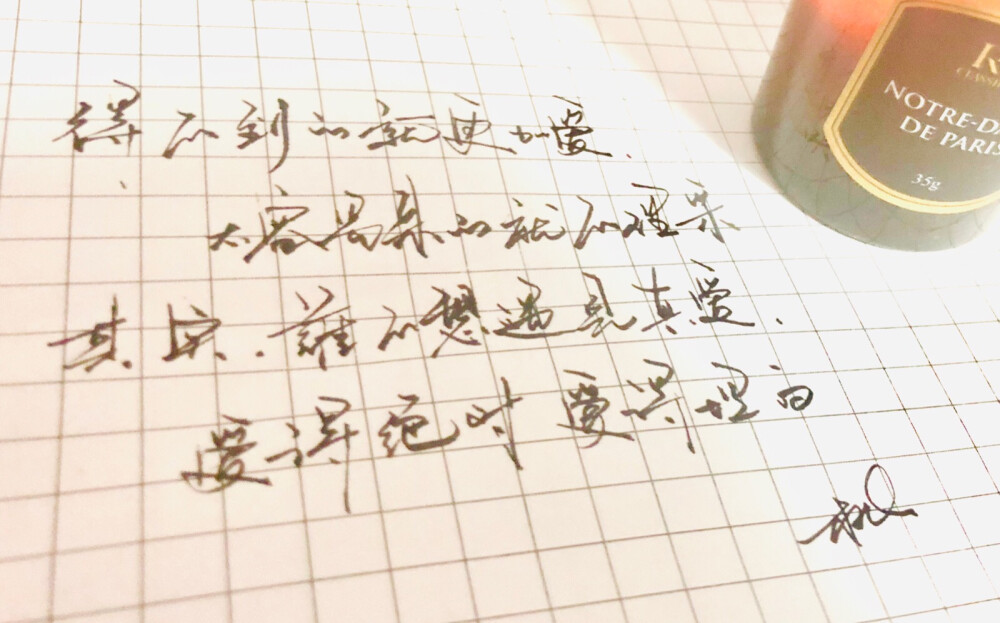 得不到的就更加爱.
太容易来的就不理采
其实.谁不想遇到真爱.
爱得绝对 爱得坦白
NOTRE-D
DE PARIS
35g